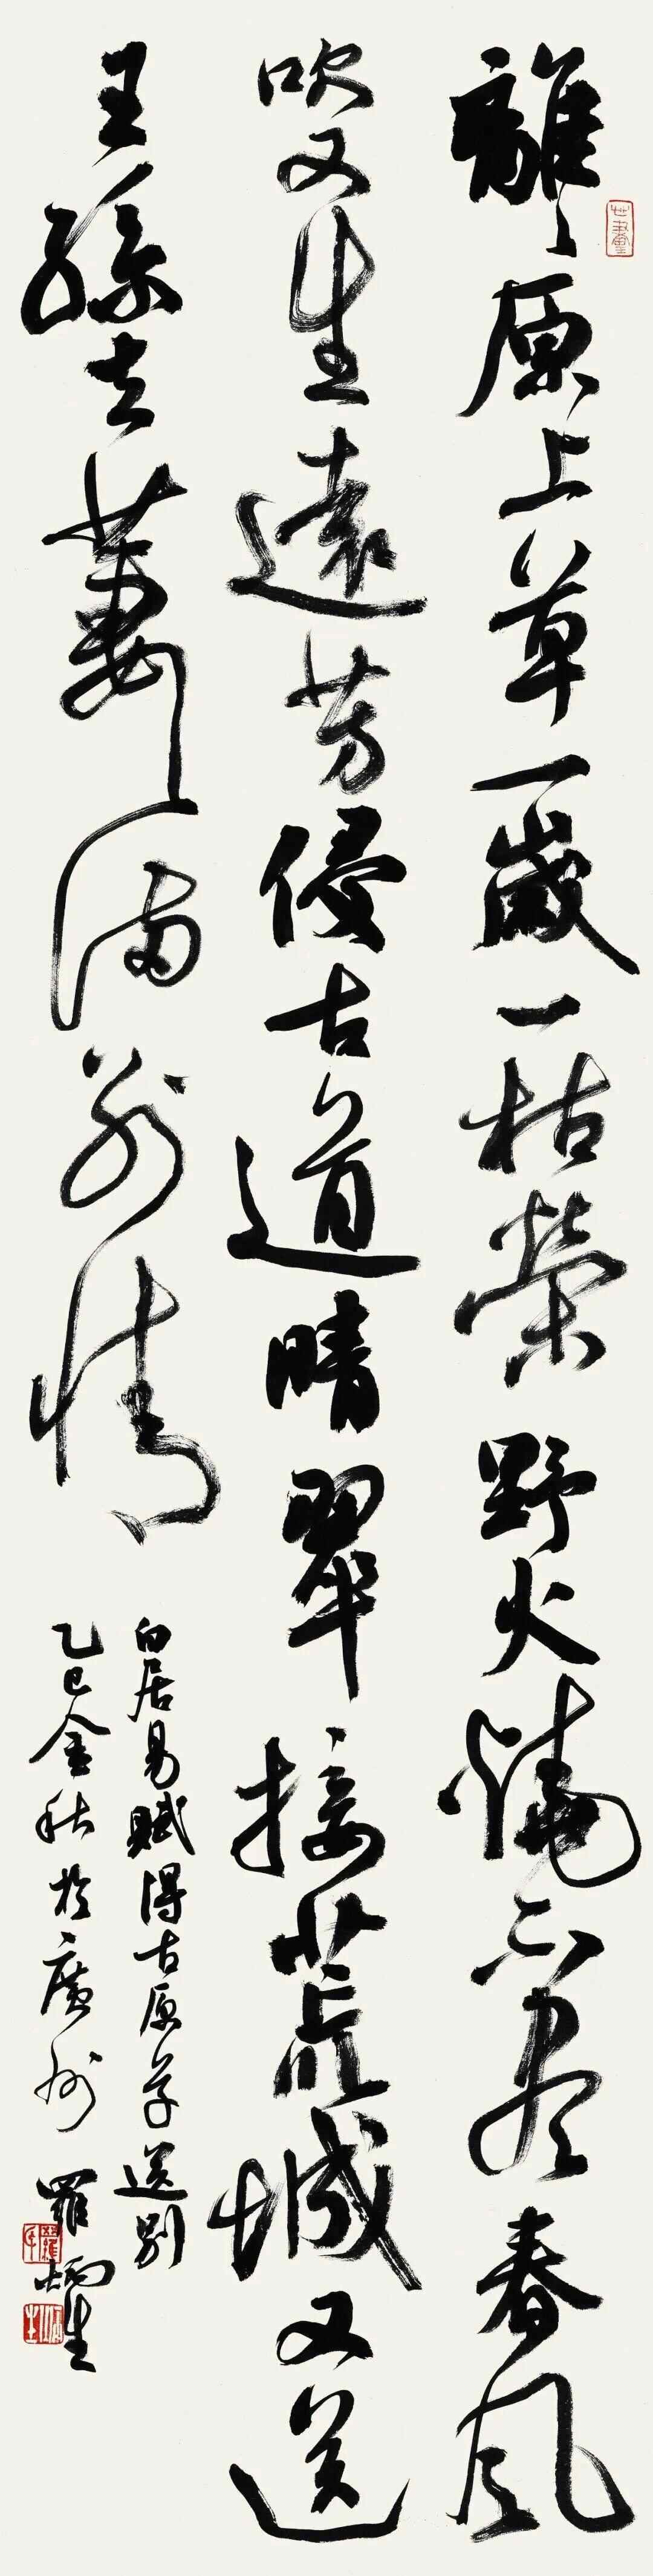 離離原上草一歲一枯榮野火燒不盡春風
吹又生遠芳侵古道晴翠接荒城又送
王孫去萋萋滿別情
白居易賦得古原草送別
乙巳金秋於廣州 羅炳生